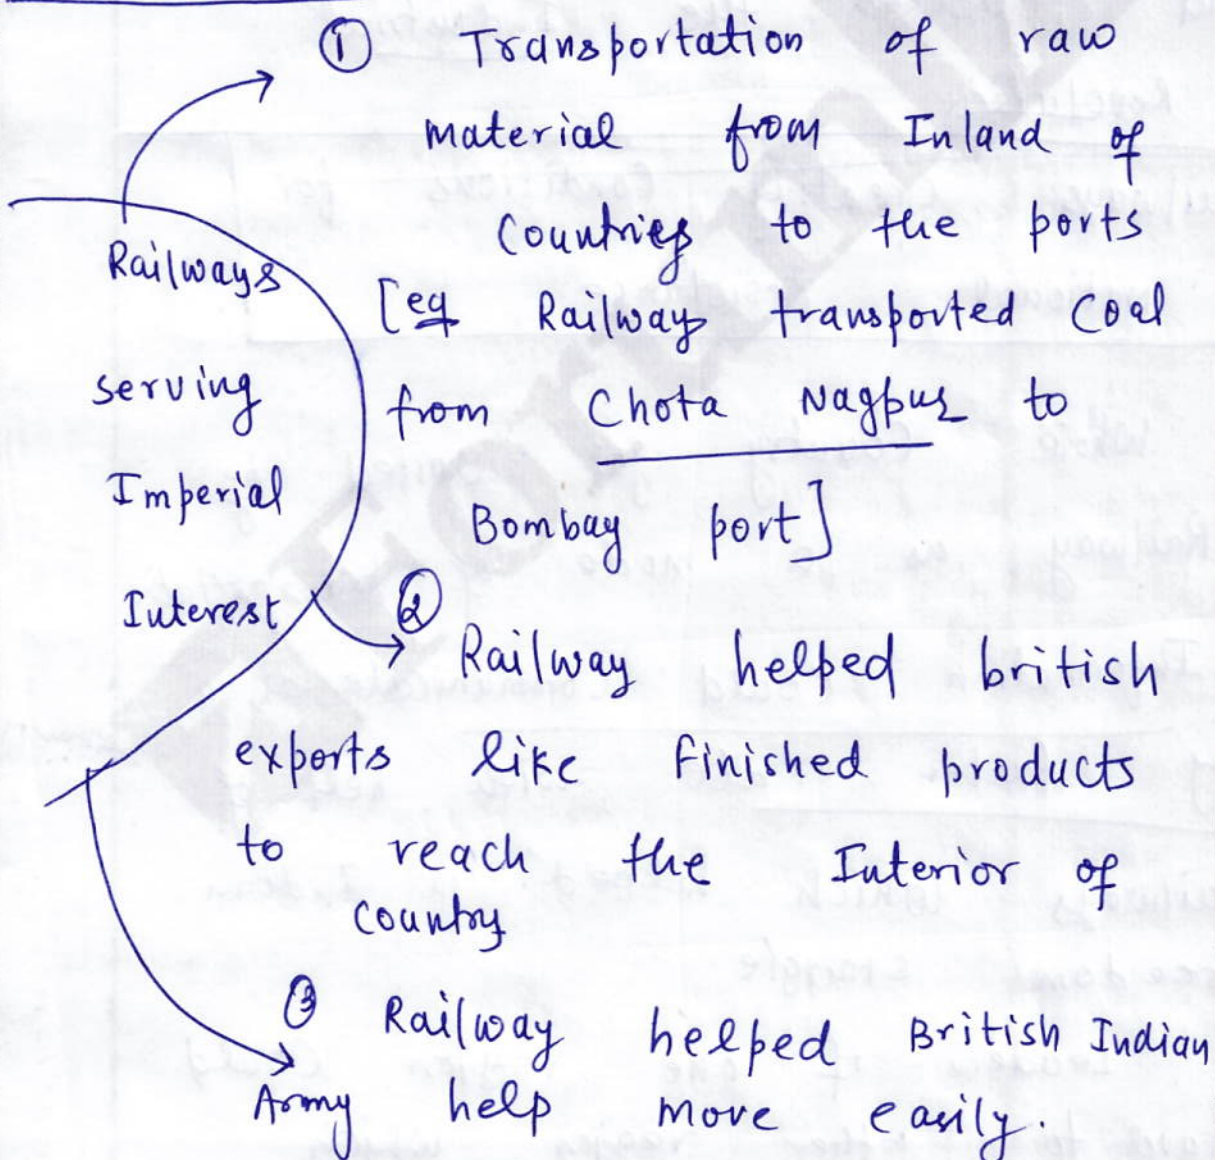 Railways
serving
Imperial
Interest
① Transportation of raw
material from Inland of
Countries to the ports
[eg Railways transported Coal
from Chota Nagpur to
Bombay port]
② Railway helped british
exports like finished products
to reach the Interior of
Country
③ Railway helped British Indian
Army help move easily.